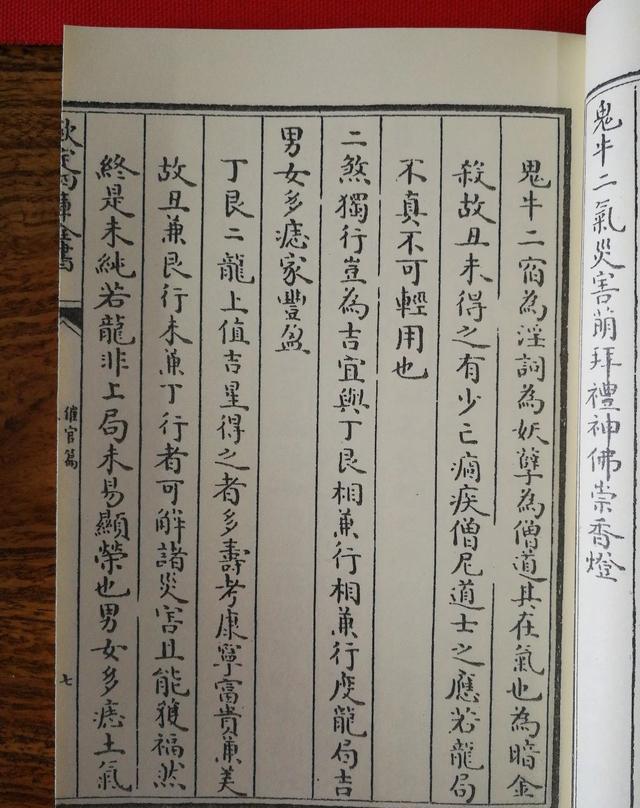 鬼牛二氣災害萌拜禮神佛崇香燈
鬼牛二宿為淫詞為妖孽為僧道其在氣也為暗金
殺故丑未得之有少亡痼疾僧尼道士之應若龍局
不真不可輕用也
二煞獨行豈為吉宜與丁艮相兼行相兼行度龍局吉
男女多痣家豐盈
丁艮二龍上值吉星得之者多壽考康寧富貴兼美
故丑兼艮行未兼丁行者可解諸災害且能獲福然
終是未純若龍非上局未易顯榮也男女多痣土氣
欽定四庫全書
催官篇
七